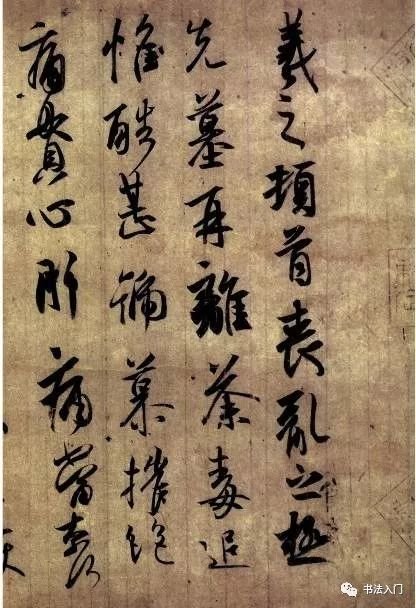 羲之頓首喪亂之極
先墓再離荼毒追
惟酷甚號慕摧絕
痛貫心肝痛當奈何
书法入门